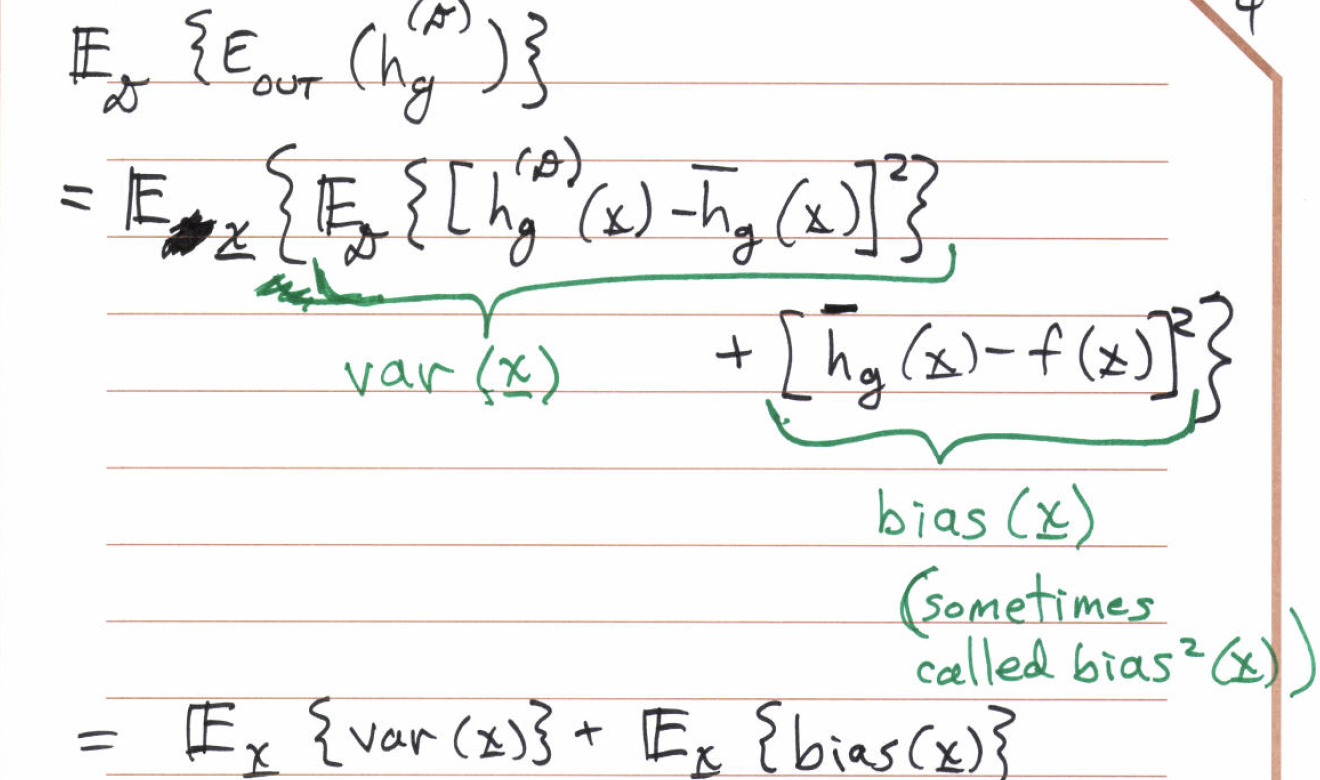 4
𝔼_𝒟 {E_OUT (h_g^(𝒟))}
= 𝔼_x̲ {𝔼_𝒟 {[h_g^(𝒟) (x̲) – h̄_g (x̲)]²}
+ [h̄_g (x̲) – f (x̲)]²}
var (x̲)
bias (x̲)
(sometimes
called bias² (x̲))
= 𝔼_x̲ {var (x̲)} + 𝔼_x̲ {bias (x̲)}